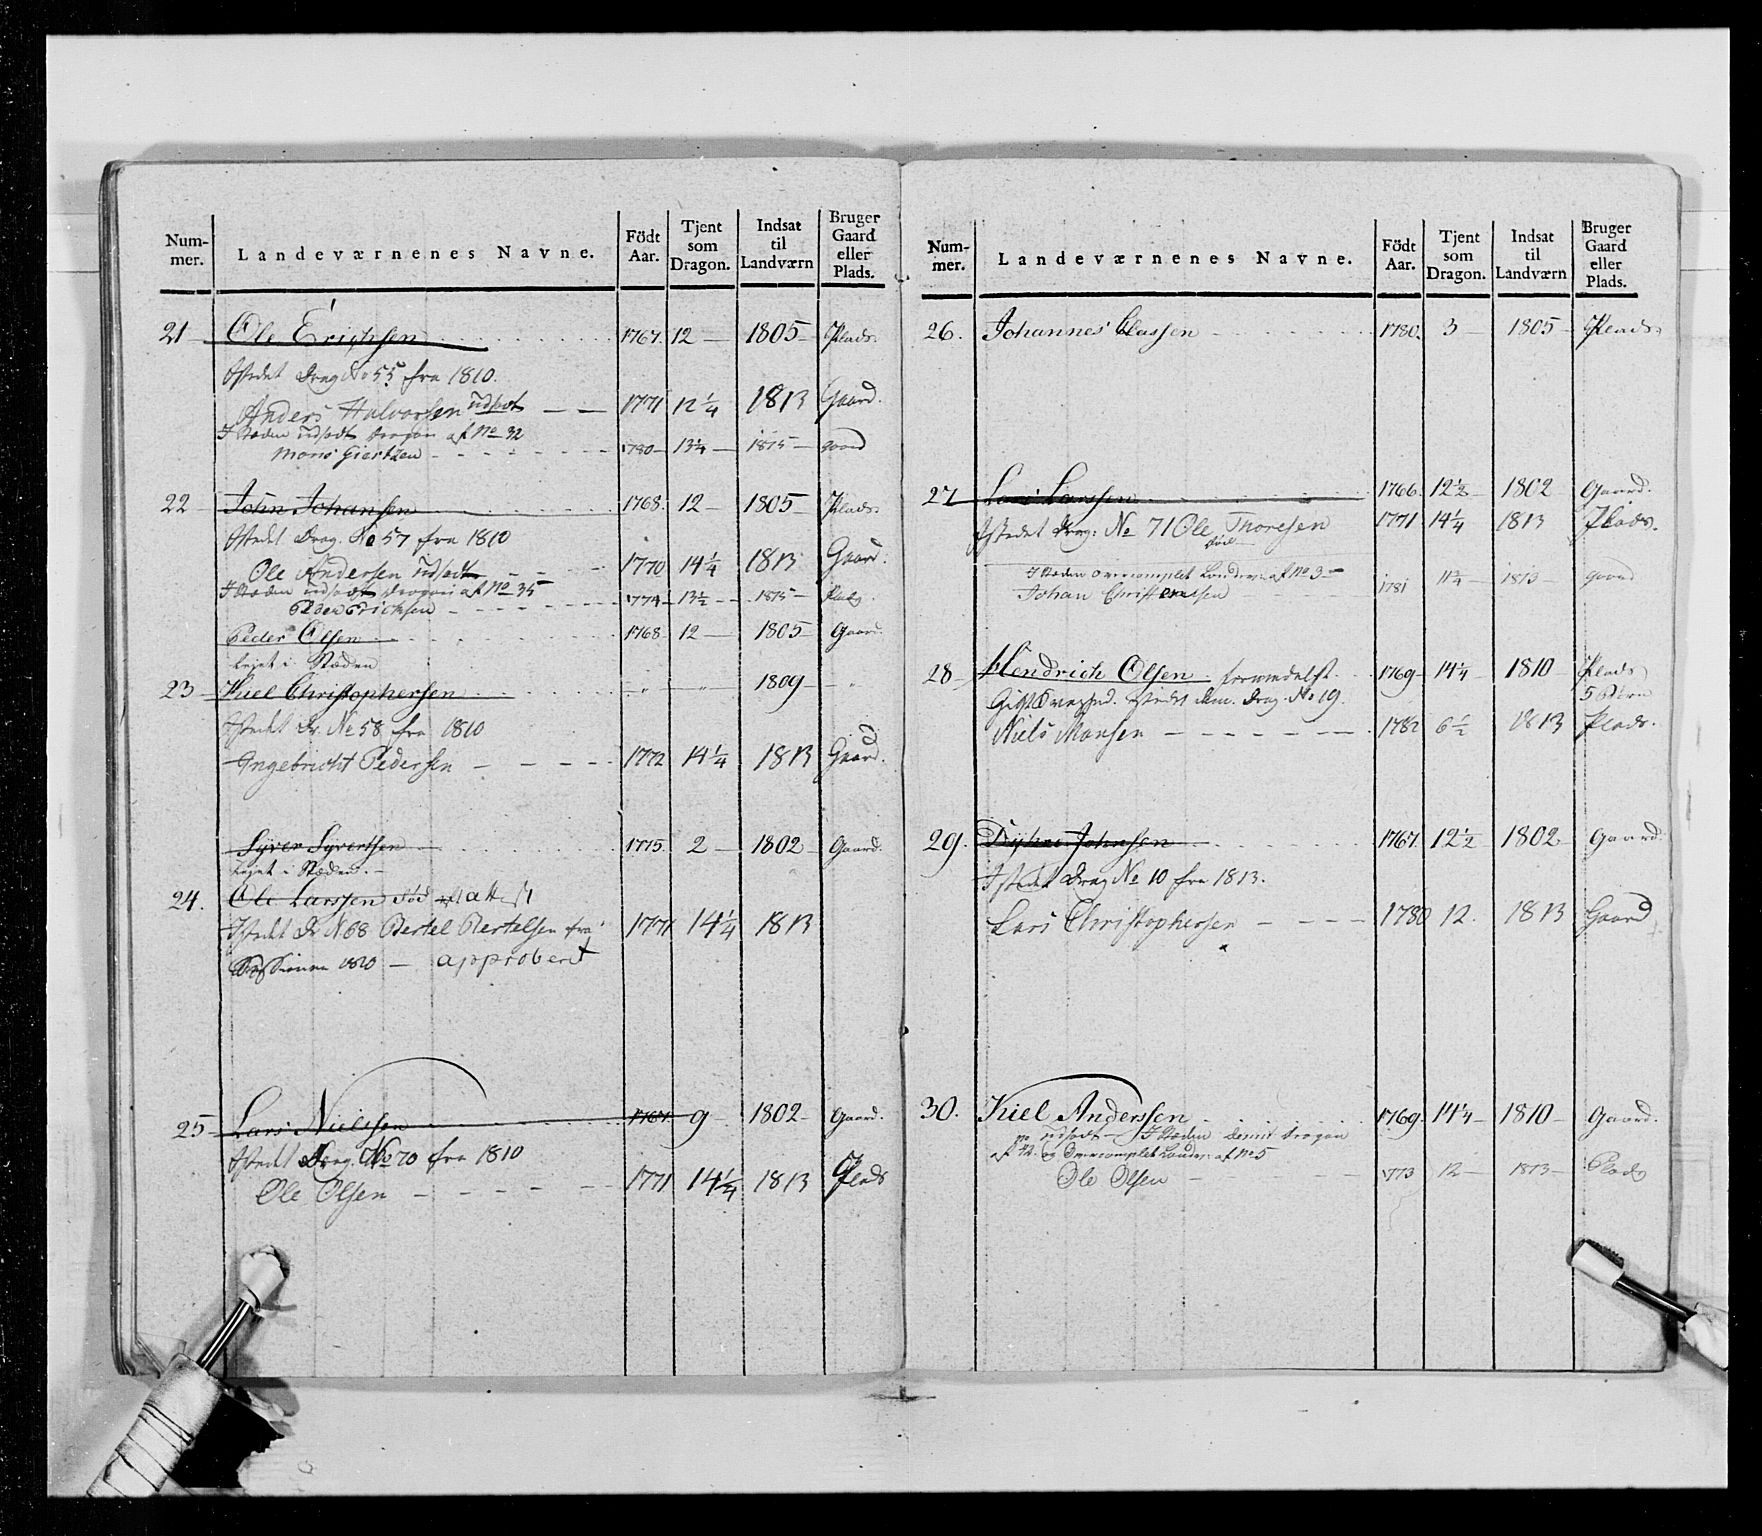 Num-
mer.
Landeværnenes Navne.
Födt
Aar.
Tjent
som
Dragon.
Indsat
til
Landværn
Bruger
Gaard
eller
Plads.
21 Ole Erichsen 1767. 12 — 1805 — Plads.
Istedet Drag No 55 fra 1810.
Anders Halvorsen udsadt — — 1771 12 1/4 1813 Gaard.
I Stæden udsadt Dragon af No 32
Mons Giertsen 1780 — 13 1/4 — 1815 — gaard
22 John Johansen 1768. 12 — 1805 — Plads.
Istedet Drag. No 57 fra 1810
Ole Andersen udsadt — 1770 14 1/4 1813 Gaard.
I Stæden udsadt Dragon af No 35
Peder Erichsen 1774 — 13 1/2 — 1815 — Plads.
Peder Olsen 1768 12 — 1805 Gaard.
Lejet i Stæden
23 Kiel Christophersen " — " 1809 — "
Istedet Dr. No 58 fra 1810
Ingebricht Pedersen — — — 1772 14 1/4 1813 Gaard.
Syver Syvertsen 1775. 2 — 1802 — Gaard.
Lejet i Stæden. —
24. Ole Larssen død attest
Istedet Dr No 68 Bertel Bertelsen fra 1771 14 1/4 1813
Sessionen 1810 — approberet
25 Lars Nielssen 1767. 9 — 1802 — Gaard.
Istedet Drag. No 70 fra 1810
Ole Olsen — — — — 1771 14 1/4 1813 Plads
Num-
mer.
Landeværnenes Navne.
Födt
Aar.
Tjent
som
Dragon.
Indsat
til
Landværn
Bruger
Gaard
eller
Plads.
26. Johannes Classen 1780. 3 — 1805 — Plads.
27 Lars Larssen 1766. 12 1/2 — 1802 Gaard.
Istedet Drag: No 71 Ole Thoresen 1771 14 1/4 1813 Plads.
død
I Stæden overcomplet Landev: af No 3 —
Johan Christenssen 1781 11 3/4 — 1813 — gaard
28 — Hendrich Olsen formedelst 1769 — 14 1/4 — 1810 — Plads
5 Børn
Istedet dem. Drag. No 19.
Niels Monsen — — — — 1782 6 1/2 1813 Plads.
29. Johnsen 1767. 12 1/2 1802 — Gaard.
Istedet Drag No 10 fra 1813.
Lars Christophersen — — — 1780 12. 1813 Gaard
30. Kiel Anderssen 1769. 14 1/4 — 1810 — Gaard.
udsadt — I Stæden Dragon
og Overcomplet Landev: af No 5
Ole Olsen — 1773 12 — 1813 — Plads